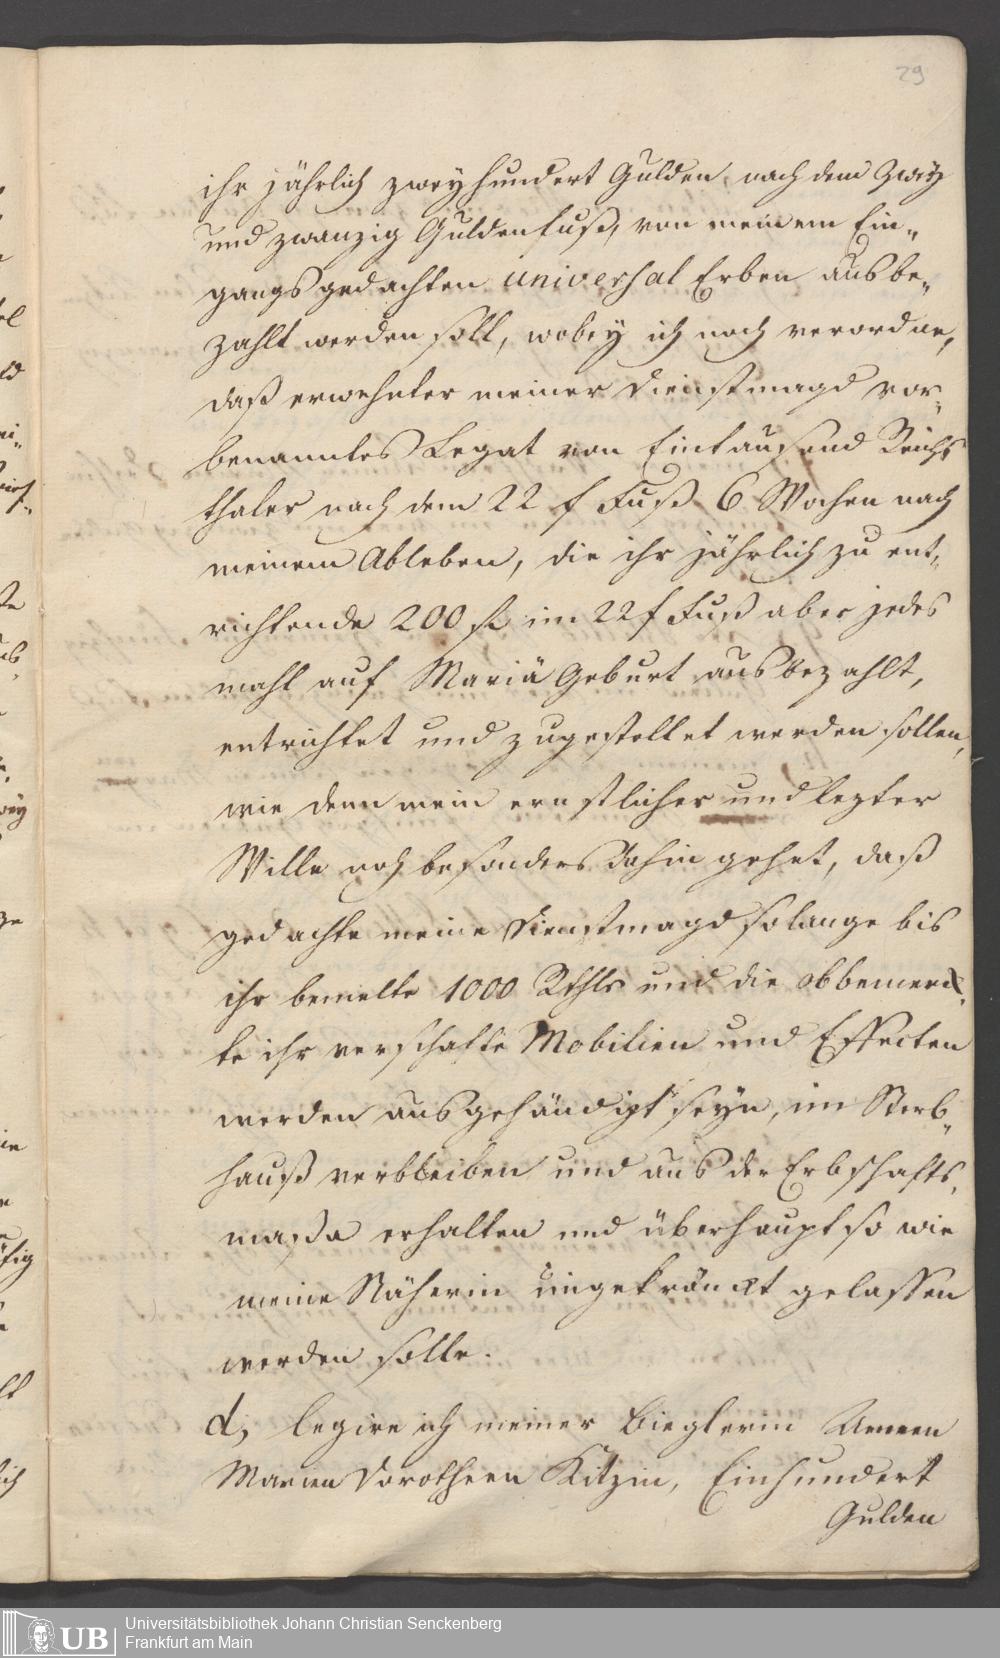 29
ihr jährlich zweyhundert Gulden nach dem Zwey
und zwanzig Guldenfuß, von meinem Ein„
gangs gedachten universal Erben ausbe„
zahlt werden soll, wobey ich noch verordne,
daß erwehnter meiner Dienstmagd vor„
benanntes Legat von Eintausend Reichs
thaler nach dem 22 f Fuß 6 Wochen nach
meinem Ableben, die ihr jährlich zu ent„
richtende 200 fl im 22 f Fuß aber jedes
mahl auf Mariä Geburt ausbezahlt,
entrichtet und zugestellet werden sollen,
wie denn mein ernstlicher und lezter
Wille noch besonders dahin gehet, daß
gedachte meine Dienstmagd solange bis
ihr bemelte 1000 Rthlr und die obbemerck„
te ihr verschafte Mobilien und Effecten
werden ausgehändigt seyn, im Sterb„
hauß verbleiben und aus der Erbschafts„
maßa erhalten und überhaupt so wie
meine Näherin ungekränckt gelassen
werden solle.
d, legire ich meiner Bieglerin Annen
Marien Dorotheen Kitzin, Einhundert
Gulden
UB Universitätsbibliothek Johann Christian Senckenberg
Frankfurt am Main